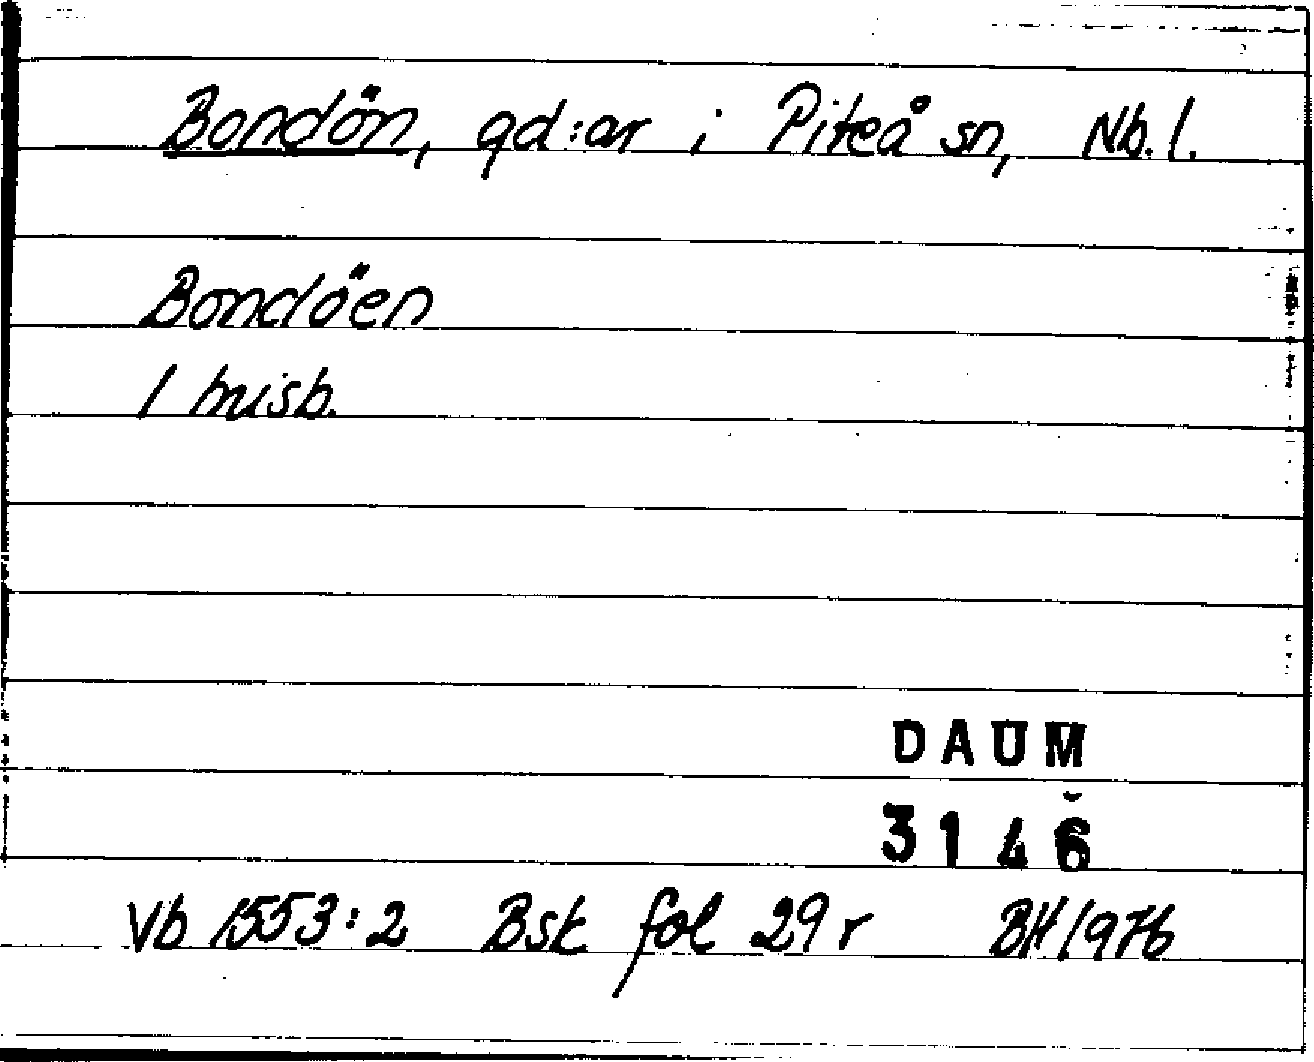 Bondön, gd:ar i Piteå sn, Nb.l.
Bondöen
1 husb.
DAUM
3146
Vb 1553:2 Bsk fol 29 r BH 1976